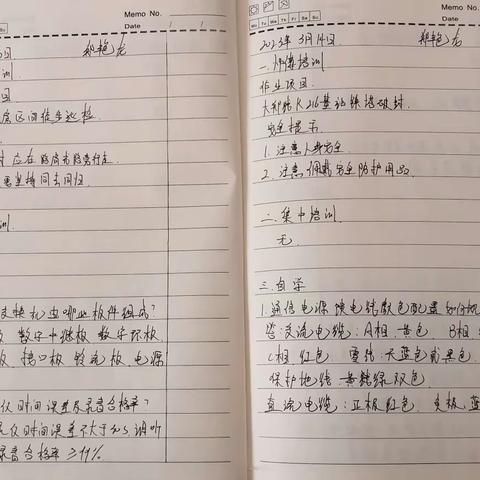 Memo No.
Date / /
郑艳龙
训
目
区间徒步巡检
应在路肩或路旁行走
坚持同去同归
训
交换机由哪些板件组成?
数字中继板 数字环板
板 接口板 铃流板 电源
仪时间误差及录音合格率?
仪时间误差不大于±5, 调听
录音合格率≥99%
Memo No.
Mo Tu We Th Fr Sa Su
Date / /
2023年3月14日. 郑艳龙
一.师傅培训
作业项目.
216基站铁塔破封.
安全提示
1. 注意人身安全.
2. 注意佩戴安全防护用品.
二. 集中培训.
无.
三. 自学
1. 通信电源 馈电线颜色配置如何规
答:交流电缆:A相 黄色 B相
C相 红色 零线:天蓝色或黑色.
保护地线 - 黄绿双色.
直流电缆:正极 红色 负极 蓝